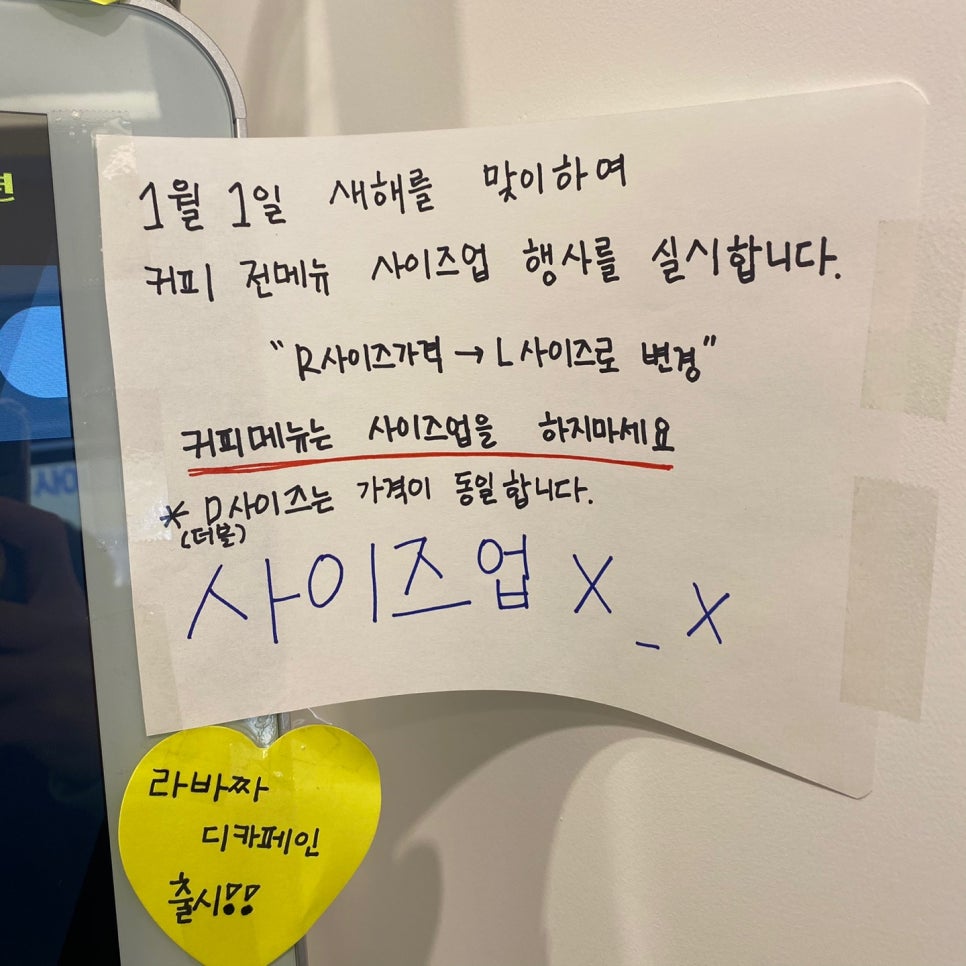 1월 1일 새해를 맞이하여
커피 전메뉴 사이즈업 행사를 실시합니다.
“R사이즈가격→L사이즈로 변경”
커피메뉴는 사이즈업을 하지마세요
* D사이즈는 가격이 동일합니다.
(더블)
사이즈업 X_X
라바짜
디카페인
출시!!